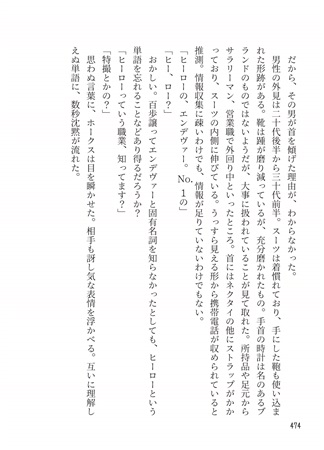 だから、その男が首を傾げた理由が、わからなかった。
男性の外見は二十代後半から三十代前半。スーツは着慣れており、手にした鞄も使い込ま
れた形跡がある。靴は踵が磨り減っているが、充分磨かれたもの。手首の時計は名のあるブ
ランドのものではないようだが、大事に扱われていることが見て取れた。所持品や足元から
サラリーマン、営業職で外回り中といったところ。首にはネクタイの他にストラップがかか
っており、スーツの内側に伸びている。うっすら見える形から携帯電話が収められていると
推測。情報収集に疎いわけでも、情報が足りていないわけでもない。
「ヒーローの、エンデヴァー。No.1の」
「ヒー、ロー？」
おかしい。百歩譲ってエンデヴァーと固有名詞を知らなかったとしても、ヒーローという
単語を忘れることなどあり得るだろうか？
「ヒーローっていう職業、知ってます？」
「特撮とかの？」
思わぬ言葉に、ホークスは目を瞬かせた。相手も訝し気な表情を浮かべる。互いに理解し
えぬ単語に、数秒沈黙が流れた。
474